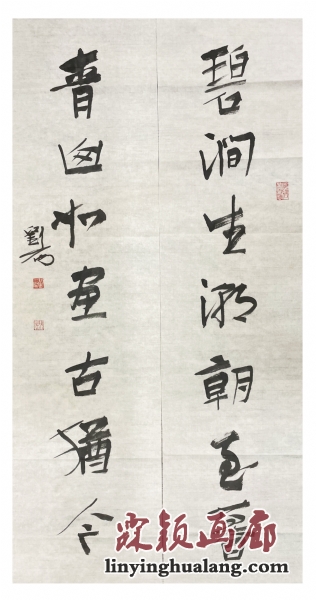 碧澗生潮朝至暮
青山如畫古猶今
劉
霖颖画廊
linyinghualang.com